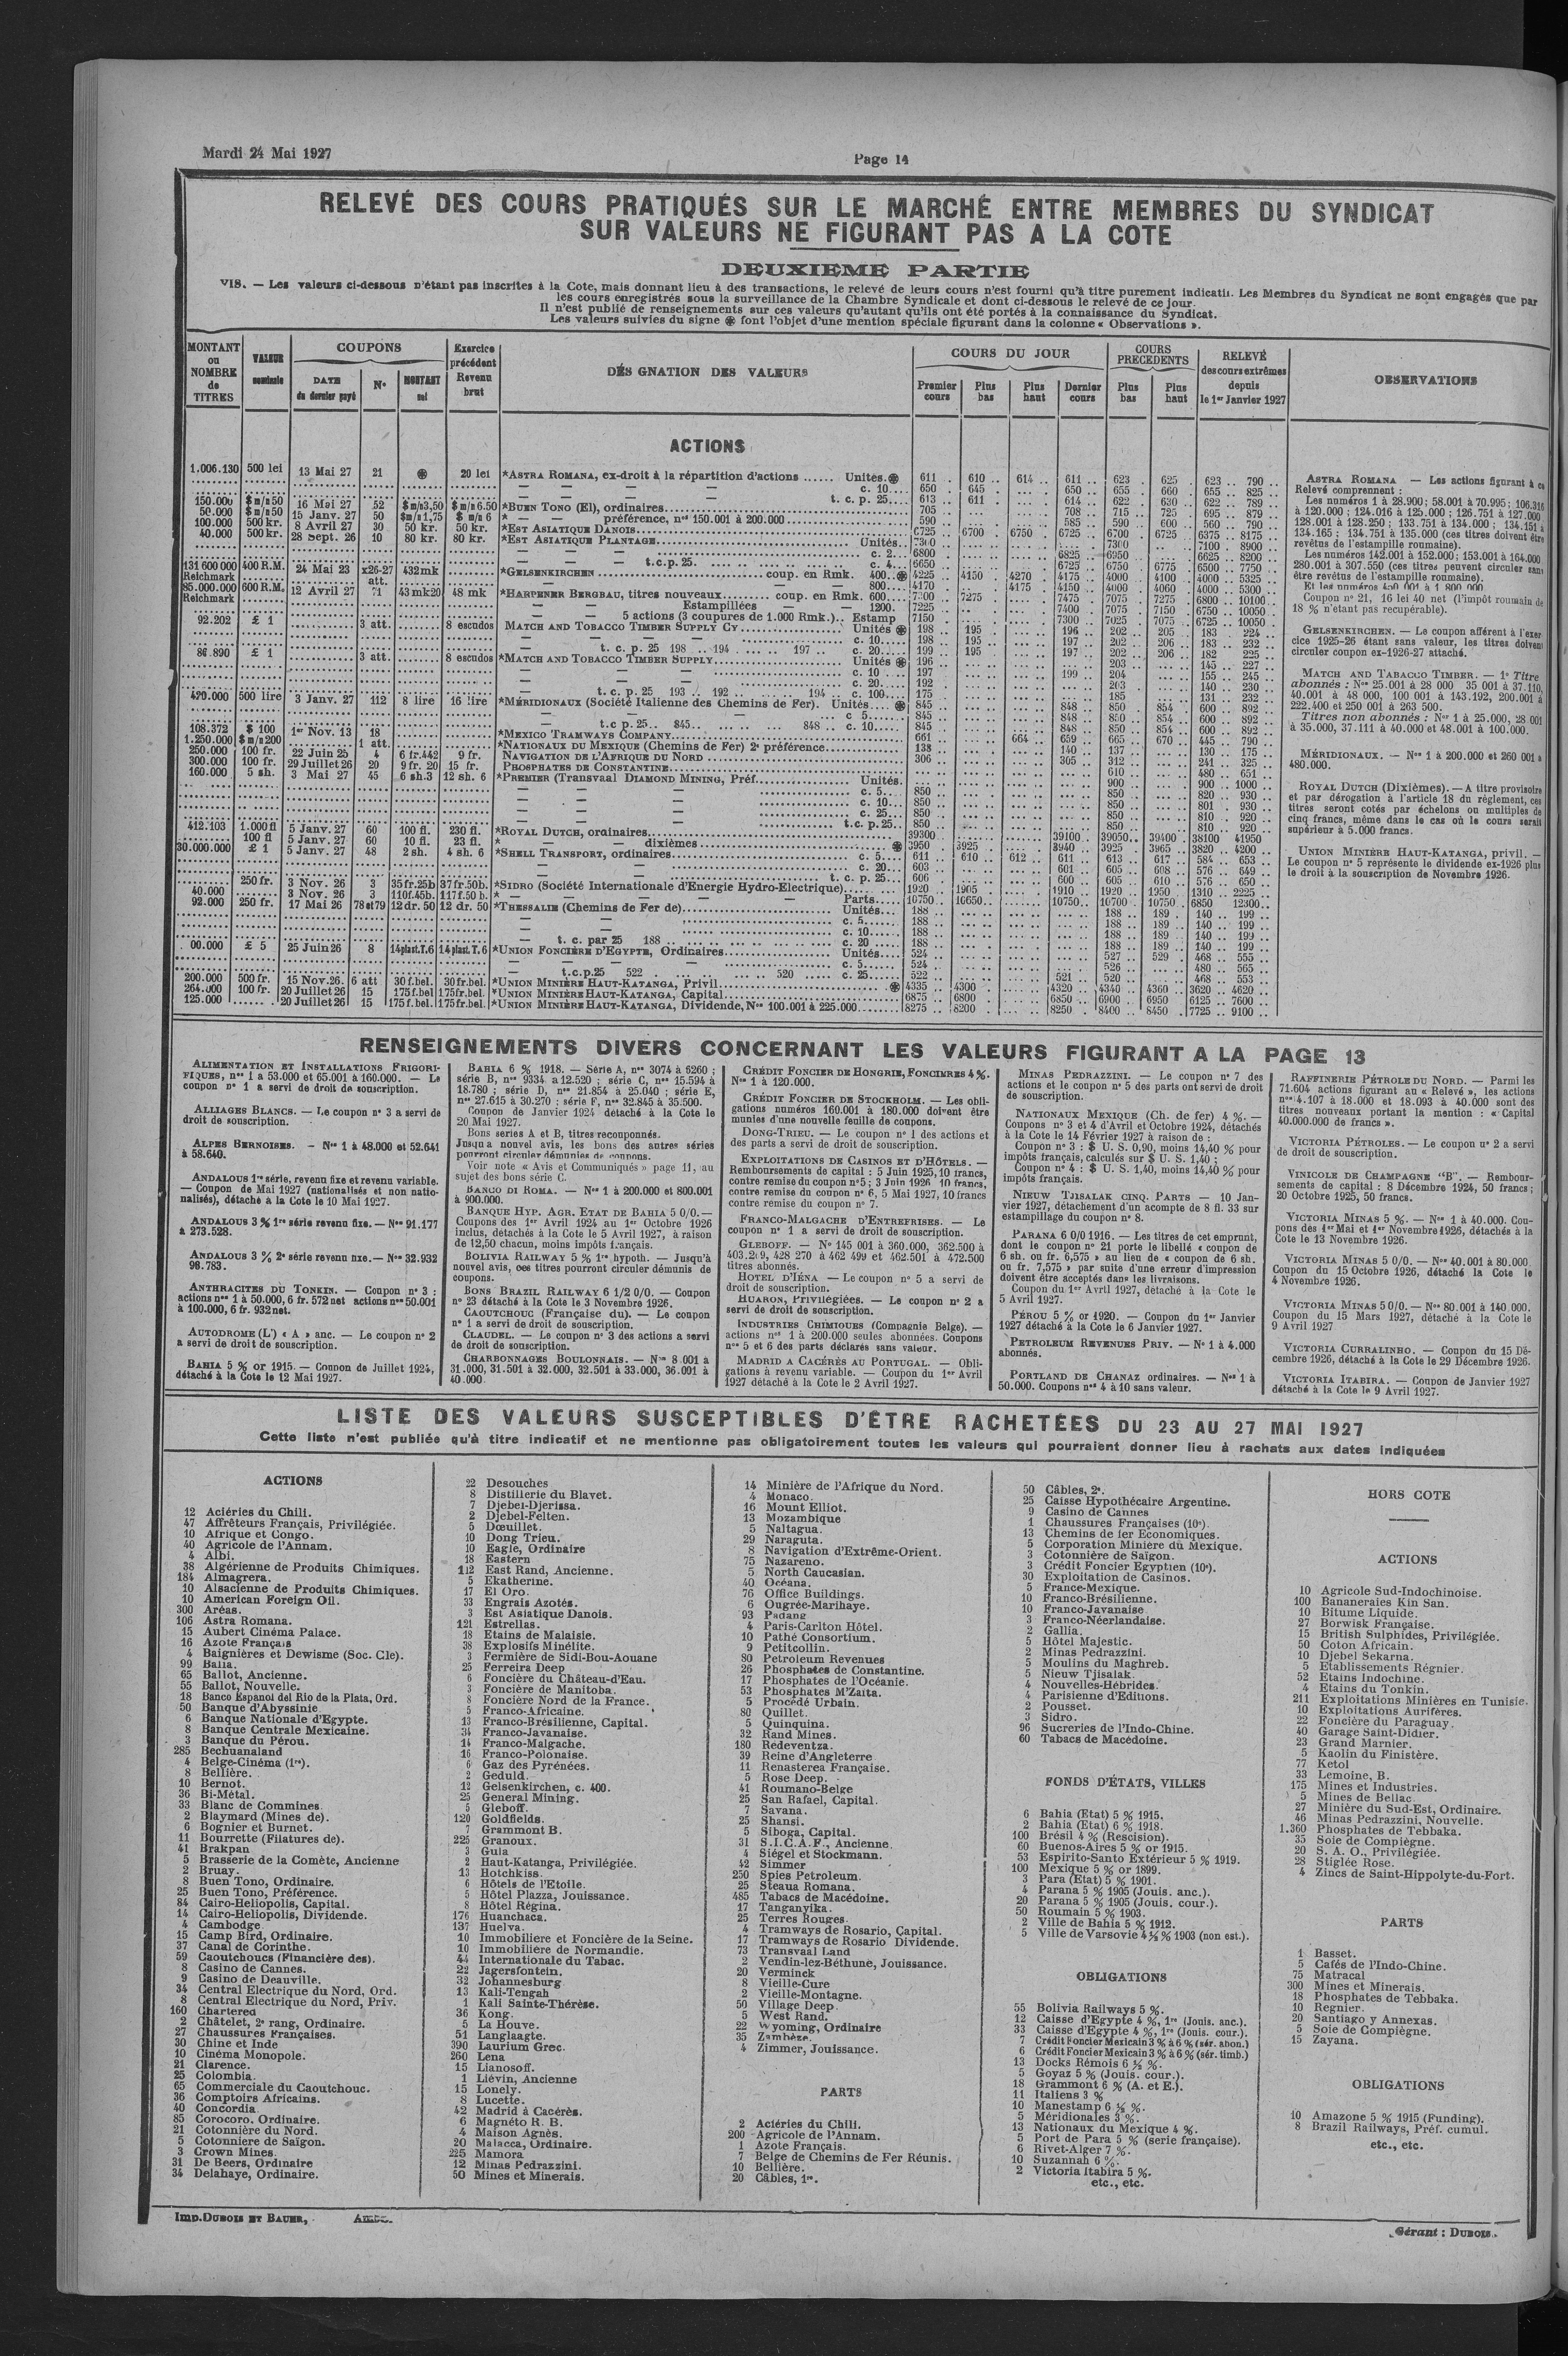 Mardi 24 Mai 1927
Page 14
RELEVÉ DES COURS PRATIQUÉS SUR LE MARCHÉ ENTRE MEMBRES DU SYNDICAT
SUR VALEURS NE FIGURANT PAS A LA COTE
DEUXIEME PARTIE
VIS. — Les valeurs ci-dessous n'étant pas inscrites à la Cote, mais donnant lieu à des transactions, le relevé de leurs cours n'est fourni qu'à titre purement indicatif. Les Membres du Syndicat ne sont engagés que par
les cours enregistrés sous la surveillance de la Chambre Syndicale et dont ci-dessous le relevé de ce jour.
Il n'est publié de renseignements sur ces valeurs qu'autant qu'ils ont été portés à la connaissance du Syndicat.
Les valeurs suivies du signe ⊛ font l'objet d'une mention spéciale figurant dans la colonne « Observations ».
MONTANT ou NOMBRE de TITRES
VALEUR nominale
COUPONS
DATE du dernier payé
N°
MONTANT net
Exercice précédent Revenu brut
DÉS GNATION DES VALEURS
COURS DU JOUR
Premier cours
Plus bas
Plus haut
Dernier cours
COURS PRECEDENTS
Plus bas
Plus haut
RELEVÉ des cours extrêmes depuis le 1er Janvier 1927
OBSERVATIONS
ACTIONS
1.006.130 500 lei 13 Mai 27 21 ⊛ 20 lei *ASTRA ROMANA, ex-droit à la répartition d'actions ...... Unités.⊛ 611 610 614 611 623 625 623 790
c. 10 650 645 650 655 660 655 825
t. c. p. 25 613 611 614 622 630 622 789
150.000 $m/n50 16 Mai 27 52 $m/n3,50 $m/n6.50 *BUEN TONO (El), ordinaires 705 708 715 725 695 879
50.000 $m/n50 15 Janv. 27 50 $m/n1,75 $m/n6 * — préférence, nos 150.001 à 200.000 590 585 590 600 560 790
100.000 500 kr. 8 Avril 27 30 50 kr. 50 kr. *EST ASIATIQUE DANOIS 6725 6700 6750 6725 6700 6725 6375 8175
40.000 500 kr. 28 Sept. 26 10 80 kr. 80 kr. *EST ASIATIQUE PLANTAGE Unités 7300 7300 7100 8900
c. 2 6800 6825 6950 6625 8200
t.c.p.25 c. 4 6650 6725 6750 6775 6500 7750
131 600 000 Reichmark 400 R.M. 24 Mai 23 x26-27 att. 432mk *GELSENKIRCHEN coup. en Rmk. 400 ⊛ 4225 4150 4270 4175 4000 4100 4000 5325
800 4170 4175 4150 4000 4060 4000 5300
85.000.000 Reichmark 600 R.M. 12 Avril 27 71 43mk20 48 mk *HARPENER BERGBAU, titres nouveaux coup. en Rmk. 600 7300 7275 7475 7075 7275 6800 10100
Estampillées 1200 7225 7400 7075 7150 6750 10050
5 actions (3 coupures de 1.000 Rmk.) Estamp 7150 7300 7025 7075 6725 10050
92.202 £ 1 3 att. 8 escudos MATCH AND TOBACCO TIMBER SUPPLY Cy Unités ⊛ 198 195 196 202 205 183 224
c. 10 198 195 197 202 206 183 232
t. c. p. 25 198 194 197 c. 20 199 195 197 202 206 182 225
86.890 £ 1 3 att. 8 escudos *MATCH AND TOBACCO TIMBER SUPPLY Unités ⊛ 196 203 145 227
c. 10 197 199 204 155 245
c. 20 192 203 140 230
t. c. p. 25 193 192 194 c. 100 175 185 131 232
420.000 500 lire 3 Janv. 27 112 8 lire 16 lire *MÉRIDIONAUX (Société Italienne des Chemins de Fer). Unités ⊛ 845 848 850 854 600 892
c 5 845 848 850 854 600 892
t.c p.25 845 848 c. 10 845 848 850 854 600 892
108.372 $ 100 1er Nov. 13 18 *MEXICO TRAMWAYS COMPANY 661 664 659 665 670 445 790
1.250.000 $m/n200 1 att. *NATIONAUX DU MEXIQUE (Chemins de Fer) 2e préférence 138 140 137 130 175
250.000 100 fr. 22 Juin 25 4 6 fr.442 9 fr. NAVIGATION DE L'AFRIQUE DU NORD 306 305 312 241 325
300.000 100 fr. 29 Juillet 26 20 9 fr. 20 15 fr. PHOSPHATES DE CONSTANTINE 610 480 651
160.000 5 sh. 3 Mai 27 45 6 sh.3 12 sh. 6 *PREMIER (Transvaal DIAMOND MINING, Préf Unités. 900 900 1000
c. 5 850 850 820 930
c. 10 850 850 801 930
c. 25 850 850 810 920
t.c.p. 25 850 850 810 920
412.103 1.000 fl 5 Janv. 27 60 100 fl. 230 fl. *ROYAL DUTCH, ordinaires 39300 39100 39050 39400 38100 41950
100 fl 5 Janv. 27 60 10 fl. 23 fl. * — dixièmes ⊛ 3950 3925 3940 3925 3965 3820 4200
30.000.000 £ 1 5 Janv. 27 48 2 sh. 4 sh. 6 *SHELL TRANSPORT, ordinaires c. 5 611 610 612 611 613 617 584 653
c. 20 603 601 605 608 576 649
t. c. p. 25 606 600 605 610 576 650
250 fr. 3 Nov. 26 3 35fr.25b 37fr.50b. *SIDRO (Société Internationale d'Energie Hydro-Electrique) 1920 1905 1910 1920 1950 1310 2225
40.000 3 Nov. 26 3 110f.45b. 117f.50 b. * — Parts 10750 10650 10750 10700 10750 6850 12300
92.000 250 fr. 17 Mai 26 78et79 12dr. 50 12 dr. 50 *THESSALIE (Chemins de Fer de) Unités 188 188 189 140 199
c. 5 188 188 189 140 199
c. 10 188 188 189 140 199
t. c. par 25 188 c. 20 188 188 189 140 199
00.000 £ 5 25 Juin 26 8 14piast.T.6 14piast.T.6 *UNION FONCIÈRE D'EGYPTE, Ordinaires Unités 524 527 529 468 555
c. 5 524 526 480 565
t.c.p.25 522 520 c. 25 522 521 520 468 553
200.000 500 fr. 15 Nov. 26. 6 att 30 f.bel. 30 fr.bel. *UNION MINIÈRE HAUT-KATANGA, Privil ⊛ 4335 4300 4320 4340 4360 3620 4620
264.000 100 fr. 20 Juillet 26 15 175 f.bel 175fr.bel. *UNION MINIÈRE HAUT-KATANGA, Capital 6875 6800 6850 6900 6950 6125 7600
125.000 20 Juillet 26 15 175 f.bel. 175fr.bel. *UNION MINIÈRE HAUT-KATANGA, Dividende, Nos 100.001 à 225.000 8275 8200 8250 8400 8450 7725 9100
ASTRA ROMANA — Les actions figurant à ce
Relevé comprennent :
Les numéros 1 à 28.900 ; 58.001 à 70.995 ; 106.316
à 120.000 ; 124.016 à 125.000 ; 126.751 à 127.000
128.001 à 128.250 ; 133.751 à 134.000 ; 134.151 à
134.165 ; 134.751 à 135.000 (ces titres doivent être
revêtus de l'estampille roumaine).
Les numéros 142.001 à 152.000 ; 153.001 à 164.000
280.001 à 307.550 (ces titres peuvent circuler sans
être revêtus de l'estampille roumaine).
Et les numéros 450 001 à 1 800 000
Coupon n° 21, 16 lei 40 net (l'impôt roumain de
18 % n'étant pas recupérable).
GELSENKIRCHEN. — Le coupon afférent à l'exer
cice 1925-26 étant sans valeur, les titres doivent
circuler coupon ex-1926-27 attaché.
MATCH AND TABACCO TIMBER. — 1° Titre
abonnés : Nos 25.001 à 28 000 35 001 à 37.110,
40.001 à 48 000, 100 001 à 143.192, 200.001 à
222.400 et 250 001 à 263 500.
Titres non abonnés : Nos 1 à 25.000, 28 001
à 35.000, 37.111 à 40.000 et 48.001 à 100.000.
MÉRIDIONAUX. — Nos 1 à 200.000 et 260 001 à
480.000.
ROYAL DUTCH (Dixièmes). — A titre provisoire
et par dérogation à l'article 18 du règlement, ces
titres seront cotés par échelons ou multiples de
cinq francs, même dans le cas où le cours serait
supérieur à 5.000 francs.
UNION MINIÈRE HAUT-KATANGA, privil. —
Le coupon n° 5 représente le dividende ex-1926 plus
le droit à la souscription de Novembre 1926.
RENSEIGNEMENTS DIVERS CONCERNANT LES VALEURS FIGURANT A LA PAGE 13
ALIMENTATION ET INSTALLATIONS FRIGORI-
FIQUES, nos 1 à 53.000 et 65.001 à 160.000. — Le
coupon n° 1 a servi de droit de souscription.
ALLIAGES BLANCS. — Le coupon n° 3 a servi de
droit de souscription.
ALPES BERNOISES. — Nos 1 à 48.000 et 52.641
à 58.640.
ANDALOUS 1re série, revenu fixe et revenu variable.
— Coupon de Mai 1927 (nationalisés et non natio-
nalisés), détaché à la Cote le 10 Mai 1927.
ANDALOUS 3 % 1re série revenu fixe. — Nos 91.177
à 273.528.
ANDALOUS 3 % 2e série revenu fixe. — Nos 32.932
98.783.
ANTHRACITES DU TONKIN. — Coupon n° 3 :
actions nos 1 à 50.000, 6 fr. 572 net actions nos 50.001
à 100.000, 6 fr. 932 net.
AUTODROME (L') « A » anc. — Le coupon n° 2
a servi de droit de souscription.
BAHIA 5 % or 1915. — Coupon de Juillet 1924,
détaché à la Cote le 12 Mai 1927.
BAHIA 6 % 1918. — Série A, nos 3074 à 6260 ;
série B, nos 9334 à 12.520 ; série C, nos 15.594 à
18.780 ; série D, nos 21.854 à 25.040 ; série E,
nos 27.615 à 30.270 ; série F, nos 32.845 à 35.500.
Coupon de Janvier 1924 détaché à la Cote le
20 Mai 1927.
Bons series A et B, titres recouponnés.
Jusqu'a nouvel avis, les bons des autres séries
pourront circuler démunies de coupons.
Voir note « Avis et Communiqués » page 11, au
sujet des bons série C.
BANCO DI ROMA. — Nos 1 à 200.000 et 800.001
à 900.000.
BANQUE HYP. AGR. ETAT DE BAHIA 5 0/0. —
Coupons des 1er Avril 1924 au 1er Octobre 1926
inclus, détachés à la Cote le 5 Avril 1927, à raison
de 12,50 chacun, moins impôts français.
BOLIVIA RAILWAY 5 % 1re hypoth. — Jusqu'à
nouvel avis, ces titres pourront circuler démunis de
coupons.
BONS BRAZIL RAILWAY 6 1/2 0/0. — Coupon
n° 23 détaché à la Cote le 3 Novembre 1926.
CAOUTCHOUC (Française du). — Le coupon
n° 1 a servi de droit de souscription.
CLAUDEL. — Le coupon n° 3 des actions a servi
de droit de souscription.
CHARBONNAGES BOULONNAIS. — Nos 8 001 à
31.000, 31.501 à 32.000, 32.501 à 33.000, 36.001 à
40.000.
CRÉDIT FONCIER DE HONGRIE, FONCIÈRES 4 %.
Nos 1 à 120.000.
CRÉDIT FONCIER DE STOCKHOLM. — Les obli-
gations numéros 160.001 à 180.000 doivent être
munies d'une nouvelle feuille de coupons.
DONG-TRIEU. — Le coupon n° 1 des actions et
des parts a servi de droit de souscription.
EXPLOITATIONS DE CASINOS ET D'HÔTELS. —
Remboursements de capital : 5 Juin 1925, 10 francs,
contre remise du coupon n° 5 ; 3 Juin 1926 10 francs,
contre remise du coupon n° 6, 5 Mai 1927, 10 francs
contre remise du coupon n° 7.
FRANCO-MALGACHE D'ENTREPRISES. — Le
coupon n° 1 a servi de droit de souscription.
GLEBOFF. — N° 145 001 à 360.000, 362.500 à
403.209, 428 270 à 462 499 et 462.501 à 472.500
titres abonnés.
HOTEL D'IÉNA — Le coupon n° 5 a servi de
droit de souscription.
HUARON, Privilégiées. — Le coupon n° 2 a
servi de droit de souscription.
INDUSTRIES CHIMIQUES (Compagnie Belge). —
actions nos 1 à 200.000 seules abonnées. Coupons
nos 5 et 6 des parts déclarés sans valeur.
MADRID A CACÉRÈS AU PORTUGAL. — Obli-
gations à revenu variable. — Coupon du 1er Avril
1927 détaché à la Cote le 2 Avril 1927.
MINAS PEDRAZZINI. — Le coupon n° 7 des
actions et le coupon n° 5 des parts ont servi de droit
de souscription.
NATIONAUX MEXIQUE (Ch. de fer) 4 %. —
Coupons n° 3 et 4 d'Avril et Octobre 1924, détachés
à la Cote le 14 Février 1927 à raison de :
Coupon n° 3 : $ U. S. 0,90, moins 14,40 % pour
impôts français, calculés sur $ U. S. 1,40 ;
Coupon n° 4 : $ U. S. 1,40, moins 14,40 % pour
impôts français.
NIEUW TJISALAK CINQ. PARTS — 10 Jan-
vier 1927, détachement d'un acompte de 8 fl. 33 sur
estampillage du coupon n° 8.
PARANA 6 0/0 1916. — Les titres de cet emprunt,
dont le coupon n° 21 porte le libellé « coupon de
6 sh. ou fr. 6,575 » au lieu de « coupon de 6 sh.
ou fr. 7,575 » par suite d'une erreur d'impression
doivent être acceptés dans les livraisons.
Coupon du 1er Avril 1927, détaché à la Cote le
5 Avril 1927.
PÉROU 5 % or 1920. — Coupon du 1er Janvier
1927 détaché à la Cote le 6 Janvier 1927.
PETROLEUM REVENUES PRIV. — N° 1 à 4.000
abonnés.
PORTLAND DE CHANAZ ordinaires. — Nos 1 à
50.000. Coupons nos 4 à 10 sans valeur.
RAFFINERIE PÉTROLE DU NORD. — Parmi les
71.604 actions figurant au « Relevé », les actions
nos 4.107 à 18.000 et 18.093 à 40.000 sont des
titres nouveaux portant la mention : « Capital
40.000.000 de francs ».
VICTORIA PÉTROLES. — Le coupon n° 2 a servi
de droit de souscription.
VINICOLE DE CHAMPAGNE "B". — Rembour-
sements de capital : 8 Décembre 1924, 50 francs ;
20 Octobre 1925, 50 francs.
VICTORIA MINAS 5 %. — Nos 1 à 40.000. Cou-
pons des 1er Mai et 1er Novembre 1926, détachés à la
Cote le 13 Novembre 1926.
VICTORIA MINAS 5 0/0. — Nos 40.001 à 80.000
Coupon du 15 Octobre 1926, détaché la Cote le
4 Novembre 1926.
VICTORIA MINAS 5 0/0. — Nos 80.001 à 140.000.
Coupon du 15 Mars 1927, détaché à la Cote le
9 Avril 1927
VICTORIA CURRALINHO. — Coupon du 15 Dé-
cembre 1926, détaché à la Cote le 29 Décembre 1926.
VICTORIA ITABIRA. — Coupon de Janvier 1927
détaché à la Cote le 9 Avril 1927.
LISTE DES VALEURS SUSCEPTIBLES D'ÊTRE RACHETÉES DU 23 AU 27 MAI 1927
Cette liste n'est publiée qu'à titre indicatif et ne mentionne pas obligatoirement toutes les valeurs qui pourraient donner lieu à rachats aux dates indiquées
ACTIONS
12 Aciéries du Chili.
47 Affréteurs Français, Privilégiée.
10 Afrique et Congo.
40 Agricole de l'Annam.
4 Albi.
38 Algérienne de Produits Chimiques.
184 Almagrera.
10 Alsacienne de Produits Chimiques.
10 American Foreign Oil.
300 Aréas.
106 Astra Romana.
15 Aubert Cinéma Palace.
16 Azote Français
4 Baignières et Dewisme (Soc. Cle).
99 Balia.
65 Ballot, Ancienne.
55 Ballot, Nouvelle.
18 Banco Espanol del Rio de la Plata, Ord.
50 Banque d'Abyssinie
6 Banque Nationale d'Egypte.
8 Banque Centrale Mexicaine.
3 Banque du Pérou.
285 Bechuanaland
4 Belge-Cinéma (1re).
8 Bellière.
10 Bernot.
36 Bi-Métal.
33 Blanc de Commines
2 Blaymard (Mines de).
6 Bognier et Burnet.
11 Bourrette (Filatures de).
41 Brakpan
5 Brasserie de la Comète, Ancienne
2 Bruay.
8 Buen Tono, Ordinaire.
25 Buen Tono, Préférence.
84 Cairo-Heliopolis, Capital.
14 Cairo-Heliopolis, Dividende.
4 Cambodge
15 Camp Bird, Ordinaire.
37 Canal de Corinthe.
59 Caoutchoucs (Financière des).
8 Casino de Cannes.
9 Casino de Deauville.
34 Central Electrique du Nord, Ord.
8 Central Electrique du Nord, Priv.
160 Chartered
2 Châtelet, 2e rang, Ordinaire.
27 Chaussures Françaises.
30 Chine et Inde
10 Cinéma Monopole.
21 Clarence.
25 Colombia.
65 Commerciale du Caoutchouc.
36 Comptoirs Africains.
40 Concordia
85 Corocoro, Ordinaire.
21 Cotonnière du Nord.
5 Cotonniere de Saïgon.
3 Crown Mines.
31 De Beers, Ordinaire
34 Delahaye, Ordinaire.
22 Desouches
8 Distillerie du Blavet.
7 Djebel-Djerissa.
2 Djebel-Felten.
5 Dœuillet.
10 Dong Trieu.
10 Eagle, Ordinaire
18 Eastern
112 East Rand, Ancienne.
5 Ekatherine.
17 El Oro.
33 Engrais Azotés.
3 Est Asiatique Danois.
121 Estrellas.
18 Etains de Malaisie.
38 Explosifs Minélite.
3 Fermière de Sidi-Bou-Aouane
25 Ferreira Deep
6 Foncière du Château-d'Eau.
3 Foncière de Manitoba.
8 Foncière Nord de la France.
5 Franco-Africaine.
13 Franco-Brésilienne, Capital.
34 Franco-Javanaise.
14 Franco-Malgache.
16 Franco-Polonaise.
6 Gaz des Pyrénées.
2 Geduld.
12 Gelsenkirchen, c. 400.
25 General Mining.
5 Gleboff.
120 Goldfields.
7 Grammont B.
225 Granoux.
3 Guia
2 Haut-Katanga, Privilégiée.
13 Hotchkiss.
6 Hôtels de l'Etoile.
5 Hôtel Plazza, Jouissance.
8 Hôtel Régina.
176 Huanchaca.
137 Huelva.
10 Immobilière et Foncière de la Seine.
10 Immobilière de Normandie.
44 Internationale du Tabac.
22 Jagersfontein.
32 Johannesburg
13 Kali-Tengah
1 Kali Sainte-Thérèse.
36 Kong.
5 La Houve.
51 Langlaagte.
390 Laurium Grec.
260 Lena
15 Lianosoff.
1 Liévin, Ancienne
15 Lonely.
8 Lucette.
42 Madrid à Cacérès.
6 Magnéto R. B.
4 Maison Agnès.
20 Malacca, Ordinaire.
225 Mamora
12 Minas Pedrazzini.
50 Mines et Minerais.
14 Minière de l'Afrique du Nord.
4 Monaco.
16 Mount Elliot.
13 Mozambique
5 Naltagua.
29 Naraguta.
8 Navigation d'Extrême-Orient.
75 Nazareno.
5 North Caucasian.
40 Océana.
76 Office Buildings.
6 Ougrée-Marihaye.
93 Padang
4 Paris-Carlton Hôtel.
10 Pathé Consortium.
9 Petitcollin.
80 Petroleum Revenues
26 Phosphates de Constantine.
17 Phosphates de l'Océanie.
53 Phosphates M'Zaita.
5 Procédé Urbain.
80 Quillet.
5 Quinquina.
32 Rand Mines.
180 Redeventza.
39 Reine d'Angleterre
11 Renasterea Française.
5 Rose Deep.
41 Roumano-Belge
25 San Rafael, Capital.
7 Savana.
25 Shansi.
5 Siboga, Capital.
31 S.I.C.A.F., Ancienne.
4 Siégel et Stockmann.
42 Simmer
250 Spies Petroleum.
25 Steaua Romana.
485 Tabacs de Macédoine.
17 Tanganyika.
25 Terres Rouges.
4 Tramways de Rosario, Capital.
17 Tramways de Rosario Dividende.
73 Transvaal Land
2 Vendin-lez-Béthune, Jouissance.
20 Verminck
8 Vieille-Cure
2 Vieille-Montagne.
50 Village Deep.
5 West Rand.
22 Wyoming, Ordinaire
35 Zambèze.
4 Zimmer, Jouissance.
PARTS
2 Aciéries du Chili.
200 Agricole de l'Annam.
1 Azote Français.
7 Belge de Chemins de Fer Réunis.
10 Bellière.
20 Câbles, 1re.
50 Câbles, 2e.
25 Caisse Hypothécaire Argentine.
9 Casino de Cannes
1 Chaussures Françaises (10e).
13 Chemins de fer Economiques.
5 Corporation Minière du Mexique.
3 Cotonnière de Saïgon.
3 Crédit Foncier Egyptien (10e).
30 Exploitation de Casinos.
5 France-Mexique.
10 Franco-Brésilienne.
10 Franco-Javanaise
3 Franco-Néerlandaise.
2 Gallia.
5 Hôtel Majestic.
2 Minas Pedrazzini.
5 Moulins du Maghreb.
5 Nieuw Tjisalak.
4 Nouvelles-Hébrides.
4 Parisienne d'Editions.
2 Pousset.
3 Sidro.
96 Sucreries de l'Indo-Chine.
60 Tabacs de Macédoine.
FONDS D'ÉTATS, VILLES
6 Bahia (Etat) 5 % 1915.
2 Bahia (Etat) 6 % 1918.
100 Brésil 4 % (Rescision).
60 Buenos-Aires 5 % or 1915.
53 Espirito-Santo Extérieur 5 % 1919.
100 Mexique 5 % or 1899.
3 Para (Etat) 5 % 1901.
4 Parana 5 % 1905 (Jouis. anc.).
20 Parana 5 % 1905 (Jouis. cour.).
50 Roumain 5 % 1903.
2 Ville de Bahia 5 % 1912.
5 Ville de Varsovie 4 ½ % 1903 (non est.).
OBLIGATIONS
55 Bolivia Railways 5 %.
12 Caisse d'Egypte 4 %, 1re (Jouis. anc.).
33 Caisse d'Egypte 4 %, 1re (Jouis. cour.).
7 Crédit Foncier Mexicain 3 % à 6 % (sér. abon.)
6 Crédit Foncier Mexicain 3 % à 6 % (sér. timb.)
13 Docks Rémois 6 ½ %.
5 Goyaz 5 % (Jouis. cour.).
18 Grammont 6 % (A. et E.).
11 Italiens 3 %
10 Manestamp 6 ½ %.
5 Méridionales 3 %.
13 Nationaux du Mexique 4 %.
5 Port de Para 5 % (serie française).
6 Rivet-Alger 7 %.
10 Suzannah 6 %.
2 Victoria Itabira 5 %.
etc., etc.
HORS COTE
ACTIONS
10 Agricole Sud-Indochinoise.
100 Bananeraies Kin San.
10 Bitume Liquide.
27 Borwisk Française.
15 British Sulphides, Privilégiée.
50 Coton Africain.
10 Djebel Sekarna.
5 Etablissements Régnier.
52 Etains Indochine.
4 Etains du Tonkin.
211 Exploitations Minières en Tunisie.
10 Exploitations Aurifères.
22 Foncière du Paraguay.
40 Garage Saint-Didier.
23 Grand Marnier.
5 Kaolin du Finistère.
77 Ketol
33 Lemoine, B.
175 Mines et Industries.
5 Mines de Bellac
27 Minière du Sud-Est, Ordinaire.
46 Minas Pedrazzini, Nouvelle.
1.360 Phosphates de Tebbaka.
35 Soie de Compiègne.
20 S. A. O., Privilégiée.
28 Stiglée Rose.
4 Zincs de Saint-Hippolyte-du-Fort.
PARTS
1 Basset.
5 Cafés de l'Indo-Chine.
75 Matracal
300 Mines et Minerais.
18 Phosphates de Tebbaka.
10 Regnier.
20 Santiago y Annexas.
5 Soie de Compiègne.
15 Zayana.
OBLIGATIONS
10 Amazone 5 % 1915 (Funding).
8 Brazil Railways, Préf. cumul.
etc., etc.
Imp. DUBOIS ET BAUER,
Gérant : DUBOIS.